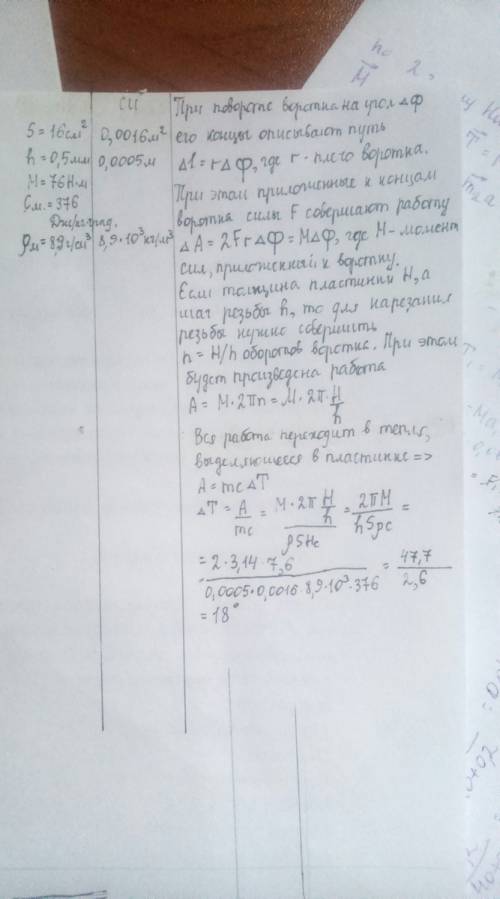 СИ
S = 16 см² 0,0016 м²
h = 0,5 мм 0,0005 м
M = 76 Н·м
См. = 376
Дж/кг·град.
ρм = 8,9 г/см³ 8,9·10³ кг/м³
При повороте воротка на угол Δφ
его концы описывают путь
Δl = rΔφ, где r - плечо воротка.
При этом приложенные к концам
воротка силы F совершают работу
ΔA = 2FrΔφ = MΔφ, где M - момент
сил, приложенный к воротку.
Если толщина пластинки H, а
шаг резьбы h, то для нарезания
резьбы нужно совершить
n = H/h оборотов воротка. При этом
будет произведена работа
A = M·2πn = M·2π H/h
Вся работа переходит в тепло,
выделяющееся в пластинке =>
A = mcΔT
ΔT = A/mc = M·2π H/h / ρSHc = 2πM/hSρc =
= 2·3,14·7,6 / 0,0005·0,0016·8,9·10³·376 = 47,7/2,6
= 18°